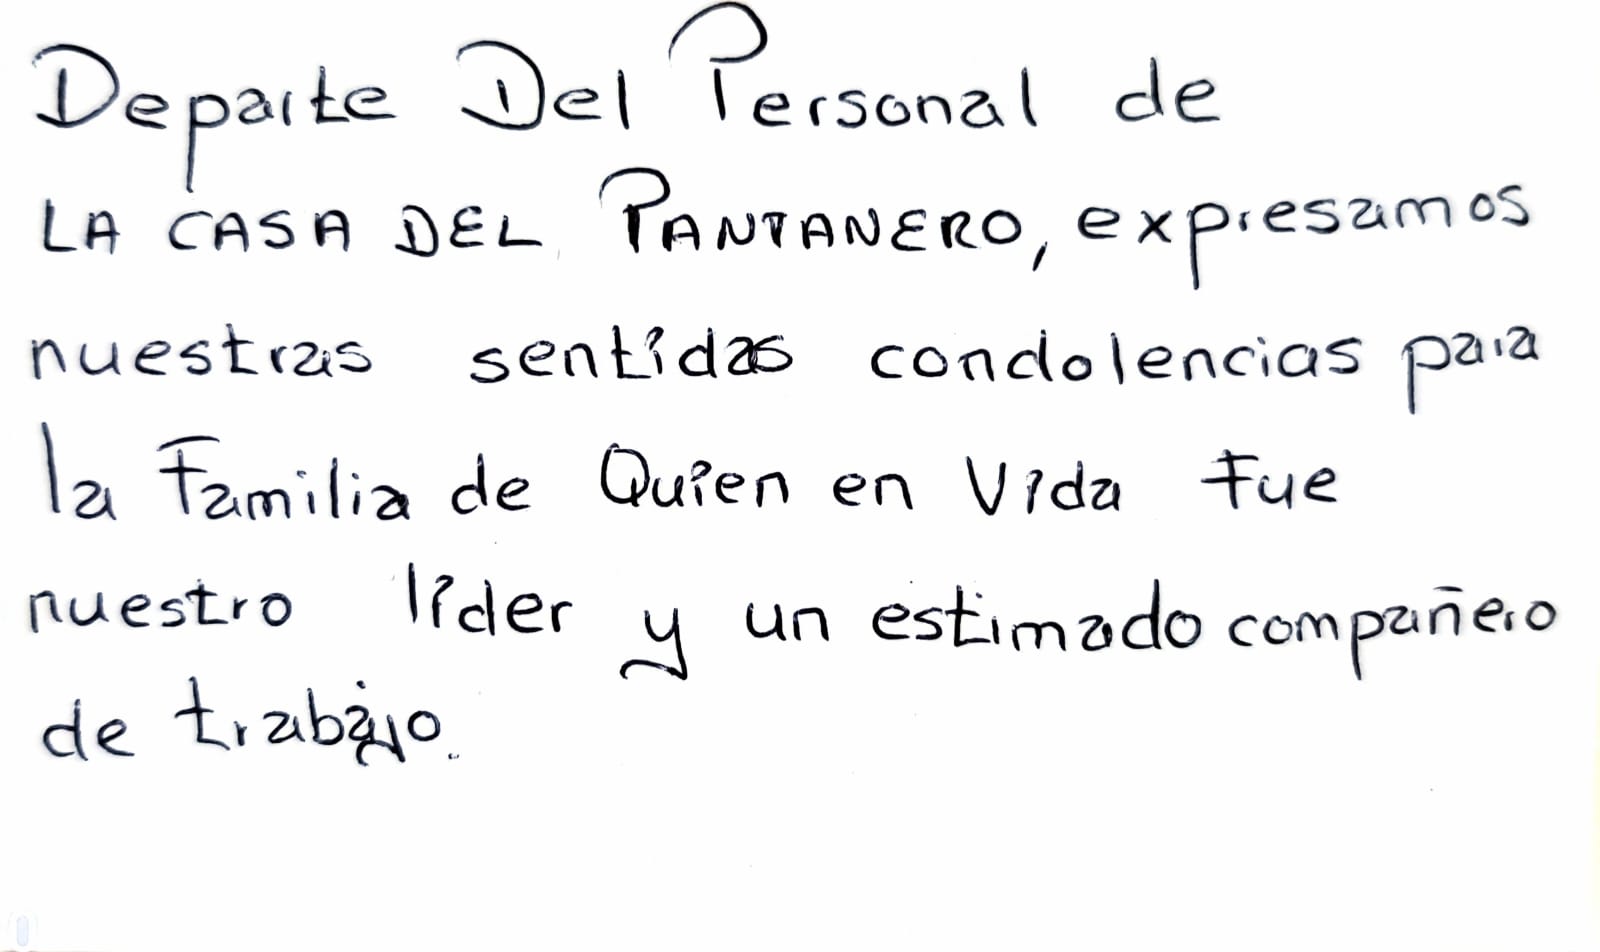 Departe Del Personal de
LA CASA DEL PANTANERO, expresamos
nuestras sentidas condolencias para
la Familia de Quien en Vida fue
nuestro líder y un estimado compañero
de trabajo.